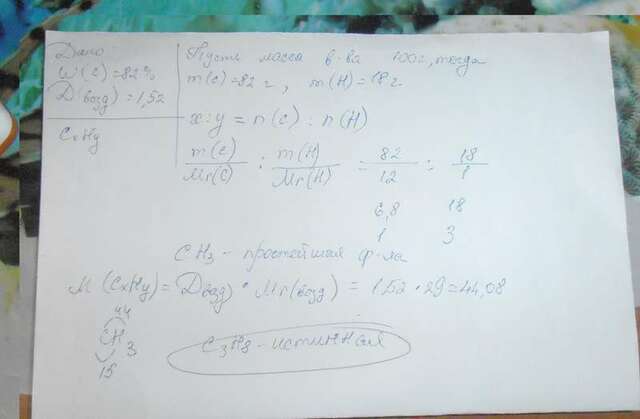 Дано
W(C)=82%
D(возд)=1,52
CxHy
Пусть масса в-ва 100г, тогда
m(C)=82 г, m(H)=18 г
x:y = n(C) : n(H)
m(C)/Mr(C) : m(H)/Mr(H) = 82/12 : 18/1
6,8 18
1 3
CH3 - простейшая ф-ла
M(CxHy) = Dвозд · Mr(возд) = 1,52 · 29 = 44,08
44
CH3
15
C3H8 - истинная